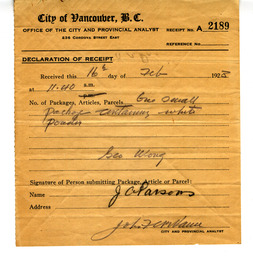 City of Vancouver, B.C.
OFFICE OF THE CITY AND PROVINCIAL ANALYST
RECEIPT No. A 2189
635 CORDOVA STREET EAST
REFERENCE No.
DECLARATION OF RECEIPT
Received this 16 day of Feb 192
at 11.00 a.m.
No. of Packages, Articles, Parcels. One small
package containing white
powder
Geo Wong
Signature of Person submitting Package, Article or Parcel:
Name J.C. Parsons
Address
CITY AND PROVINCIAL ANALYST